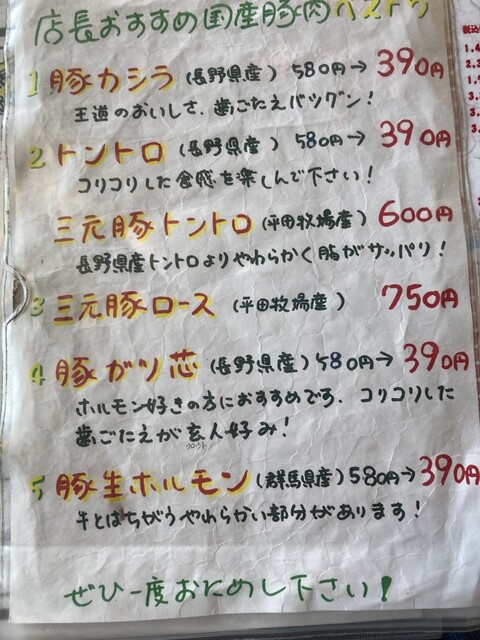 店長おすすめ国産豚肉ベスト5
1 豚カシラ (長野県産) 580円→390円
王道のおいしさ、歯ごたえバツグン!
2 トントロ (長野県産) 580円→390円
コリコリした食感を楽しんで下さい!
三元豚トントロ (平田牧場産) 600円
長野県産トントロよりやわらかく脂がサッパリ!
3 三元豚ロース (平田牧場産) 750円
4 豚ガツ芯 (長野県産) 580→390円
ホルモン好きの方におすすめです、コリコリした
歯ごたえが玄人好み!
クロウト
5 豚生ホルモン (群馬県産) 580円→390円
牛とはちがうやわらかい部分があります!
ぜひ一度おためし下さい!